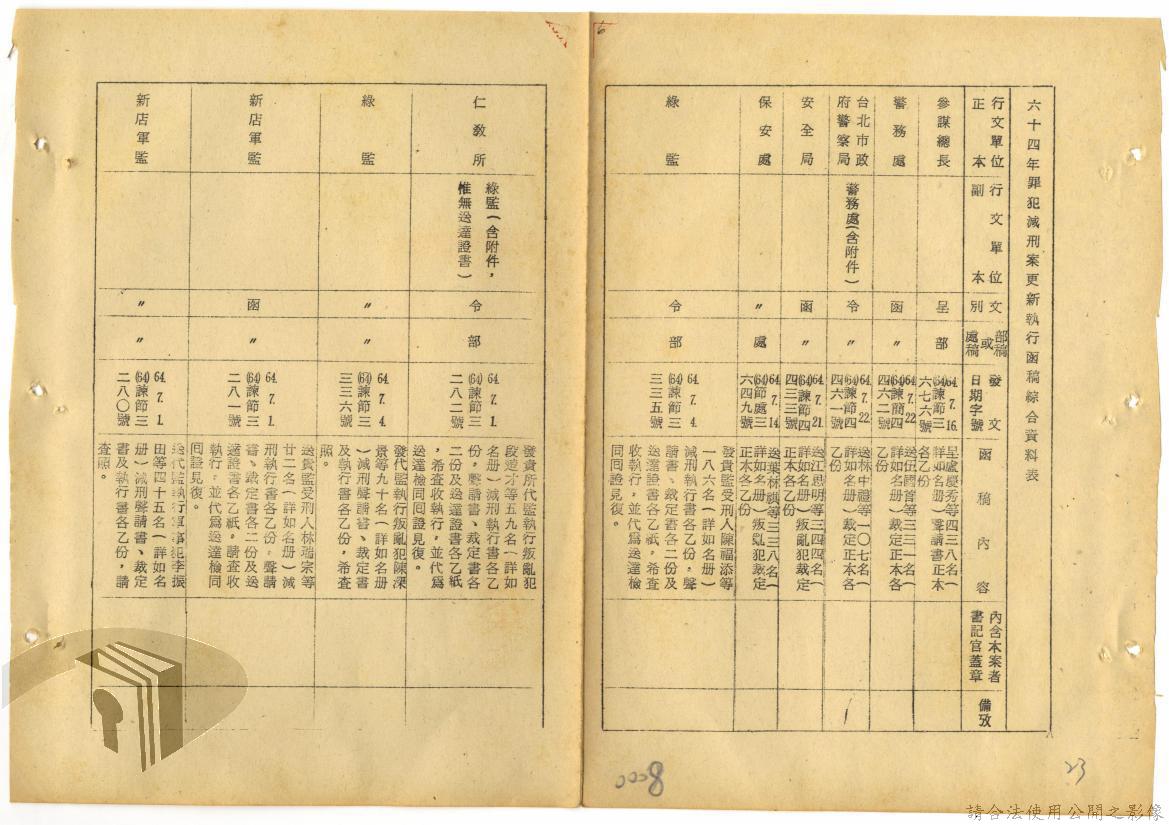 六十四年罪犯減刑案更新執行函稿綜合資料表
行文單位
正本
行文單位
副本
文別
部稿
或
處稿
發文
日期字號
函稿內容
內含本案者
書記官蓋章
備攷
參謀總長
呈
部
64. 7. 16.
(64)諫節三
六七六號
呈盧慶秀等四三八名(
詳如名册)聲請書正本
各乙份
警務處
函
〃
64. 7. 22
(64)諫簡四
四六二號
送伍國首等三三一名(
詳如名册)裁定正本各
乙份
台北市政
府警察局
警務處(含附件)
令
〃
64. 7. 22.
(64)諫節四
四六一號
送林中禮等一〇七名(
詳如名册)裁定正本各
乙份
安全局
函
〃
64. 7. 21.
(64)諫節四
四三三號
送江思明等三四四名(
詳如名册)叛亂犯裁定
正本各乙份
保安處
〃
處
64. 7. 14.
(64)節處三
六四九號
送葉林麒等三三八名(
詳如名册)叛亂犯裁定
正本各乙份
綠監
令
部
64. 7. 4.
(64)諫節三
三三五號
發貴監受刑人陳福添等
一八六名(詳如名册)
減刑執行書各乙份,聲
請書、裁定書各二份及
送達證書各乙紙,希查
收執行,並代為送達檢
同回證見復。
仁教所
綠監(含附件,
惟無送達證書)
令
部
64. 7. 1.
(64)諫節三
二八二號
發貴所代監執行叛亂犯
段適才等五九名(詳如
名册)減刑執行書各乙
份,聲請書、裁定書各
二份及送達證書各乙紙
,希查收執行,並代為
送達檢同回證見復。
綠監
〃
〃
64. 7. 4.
(64)諫節三
三三六號
發代監執行叛亂犯陳深
景等九十名(詳如名册
)減刑聲請書、裁定書
及執行書各乙份,希查
照。
新店軍監
函
〃
64. 7. 1.
(64)諫節三
二八一號
送貴監受刑人林瑞宗等
廿二名(詳如名册)減
刑執行書各乙份,聲請
書、裁定書各二份及送
達證書各乙紙,請查收
執行,並代為送達檢同
回證見復。
新店軍監
〃
〃
64. 7. 1.
(64)諫節三
二八〇號
送代監執行軍事犯李振
田等四十五名(詳如名
册)減刑聲請書、裁定
書及執行書各乙份,請
查照。
0008
23
請合法使用公開之影像